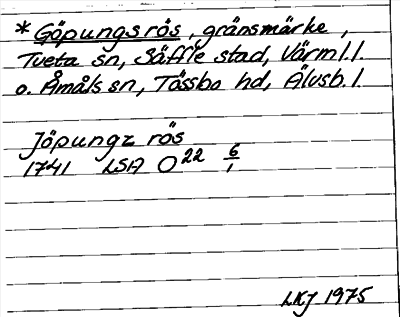 * Göpungsrös, gränsmärke,
Tveta sn, Säffle stad, Värml.l.
o. Åmåls sn, Tössbo hd, Älvsb. l.
Jöpungz rös
1741 LSA O 22 6/1
LKJ 1975